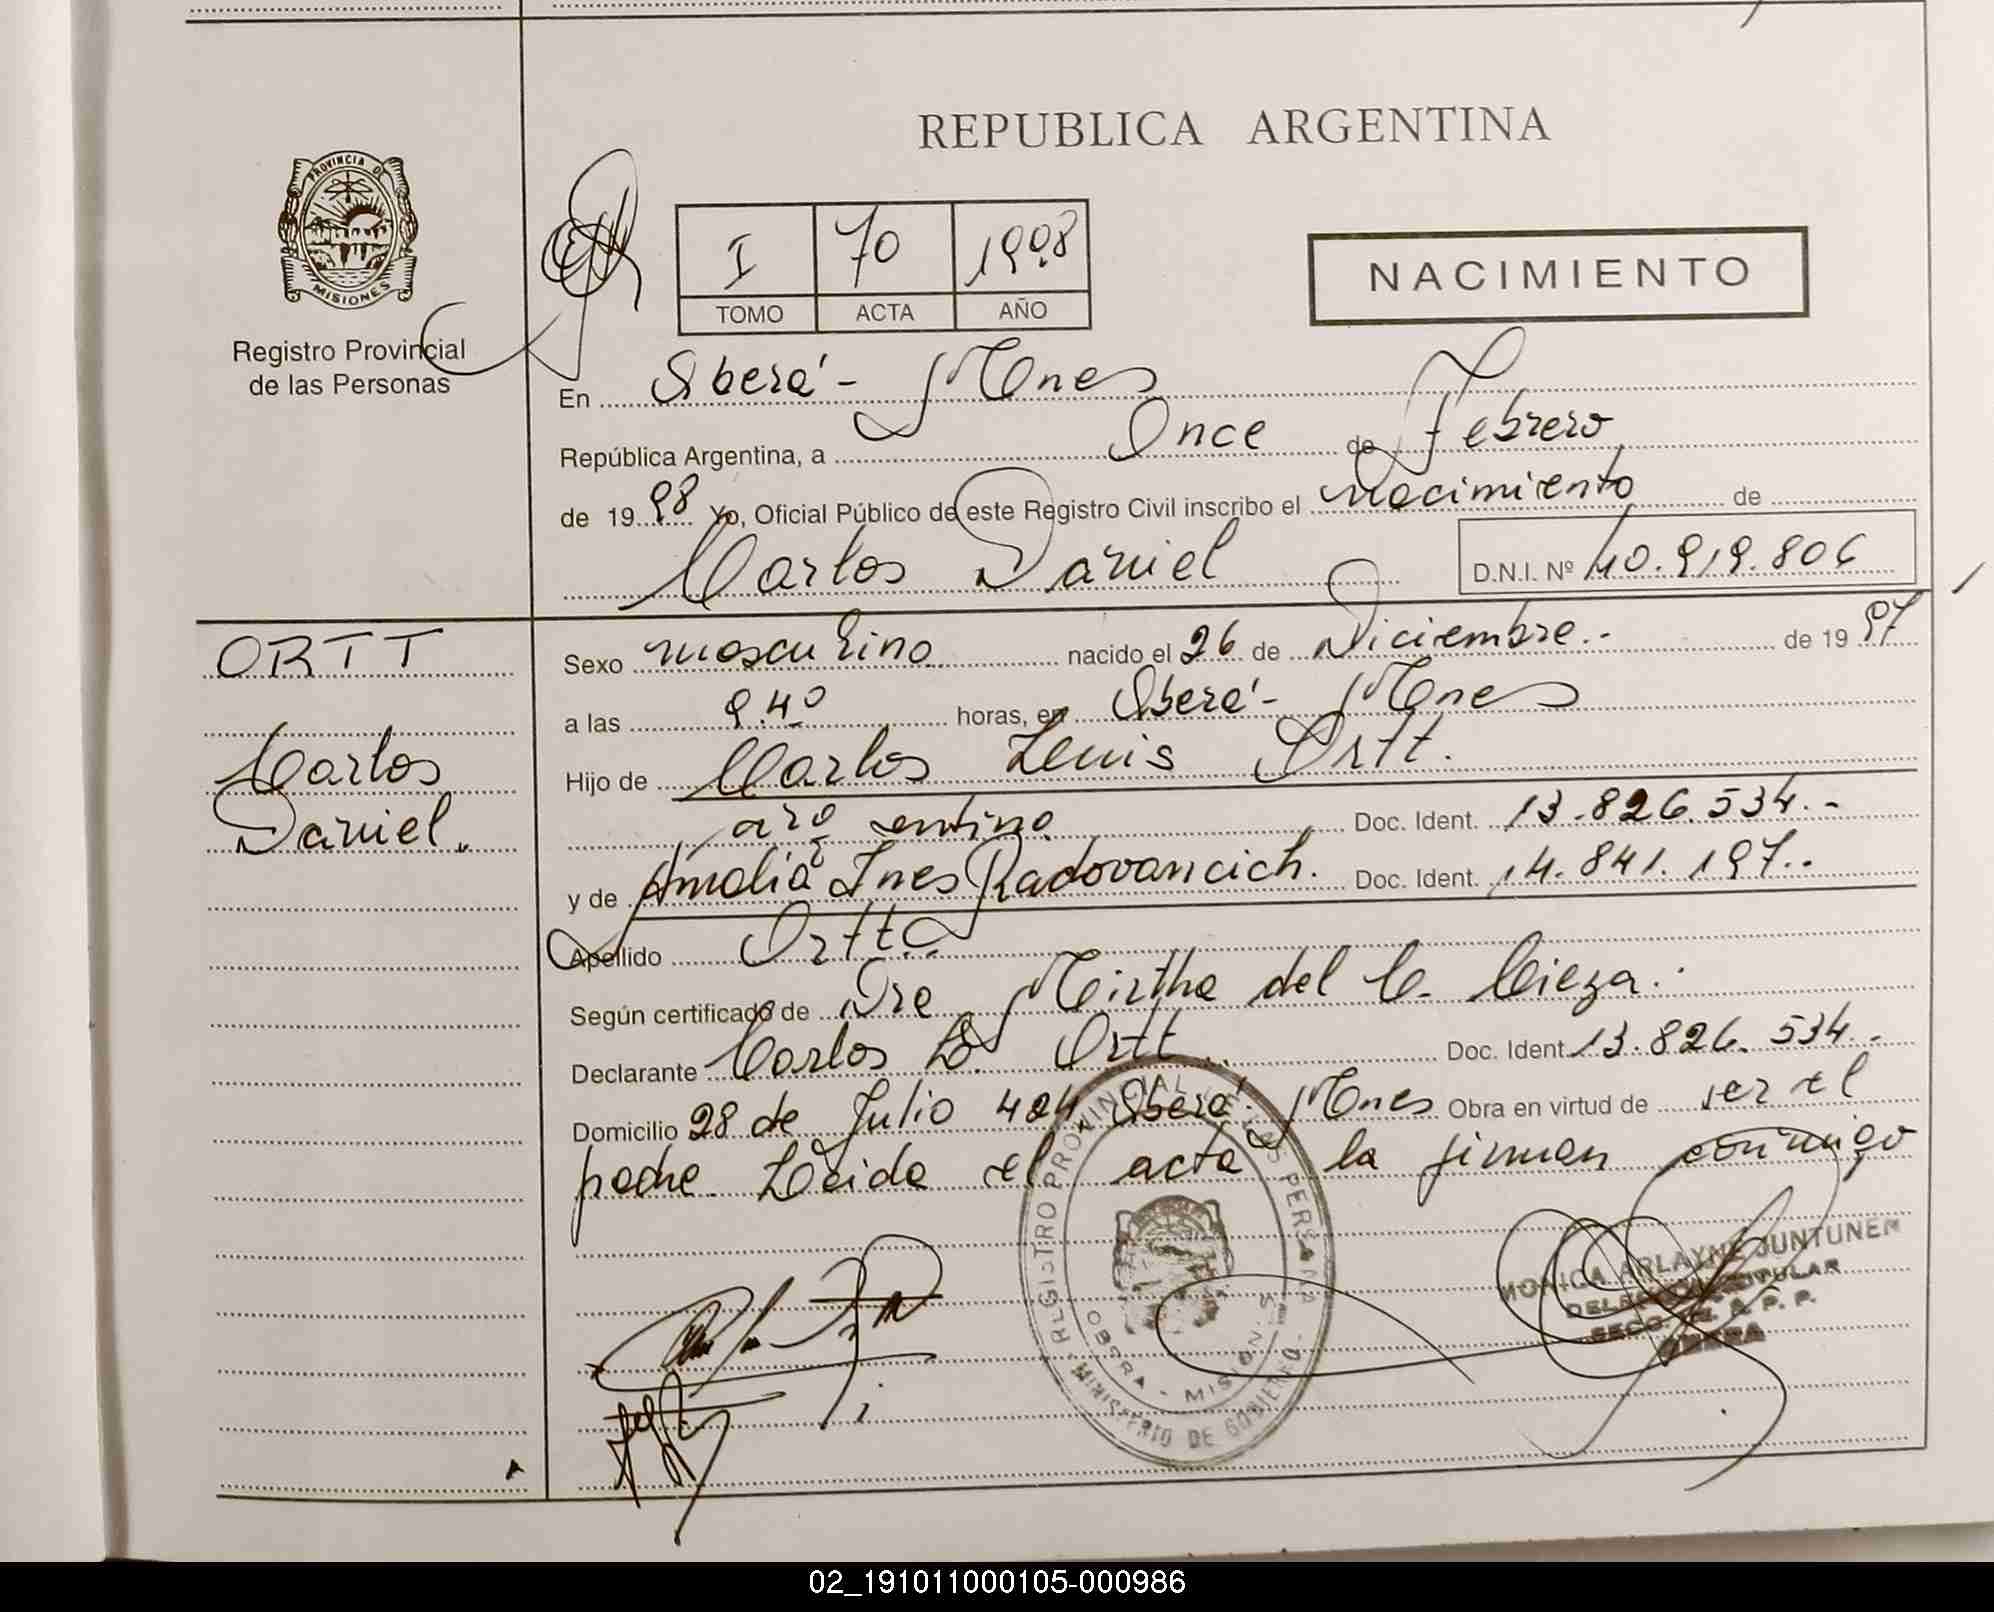 REPUBLICA ARGENTINA
PROVINCIA DE
MISIONES
Registro Provincial
de las Personas
I 70 1998
TOMO ACTA AÑO
NACIMIENTO
En Oberá - Mnes
República Argentina, a Once de Febrero
de 1998 Yo, Oficial Público de este Registro Civil inscribo el nacimiento de
Carlos Daniel D.N.I. Nº 40.919.806
ORTT
Carlos
Daniel.
Sexo masculino nacido el 26 de Diciembre.- de 1997
a las 9.40 horas, en Oberá - Mnes
Hijo de Carlos Luis Ortt.
argentino Doc. Ident. 13.826.534.-
y de Amalia Ines Radovancich. Doc. Ident. 14.841.197.-
Apellido Ortt.-
Según certificado de Dra Mirtha del C. Cieza.
Declarante Carlos L. Ortt Doc. Ident. 13.826.534.-
Domicilio 28 de Julio 404 Oberá - Mnes Obra en virtud de ser el
padre. Leida el acta la firman conmigo
REGISTRO PROVINCIAL DE LAS PERSONAS
OBERA - MISIONES
MINISTERIO DE GOBIERNO
MONICA ARLAYNE JUNTUNEN
DELEGADA TITULAR
SECC. R. P. P.
OBERA
02_191011000105-000986